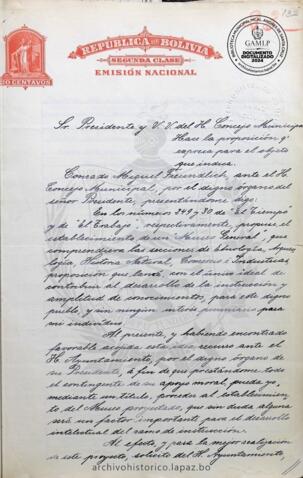 REPÚBLICA DE BOLIVIA
SEGUNDA CLASE
EMISIÓN NACIONAL
20 CENTAVOS
GAMLP
DOCUMENTO
DIGITALIZADO
2024
Sr. Presidente y V. V. del H. Concejo Municipal
Hace la proposición q'
expresa para el objeto
que indica.
Conrado Miguel Freundlich, ante el H.
Concejo Municipal, por el digno órgano del
señor Presidente, presentándome digo:
En los números 249 y 30 de "El Tiempo"
y de "El Trabajo", respectivamente, propuse el
establecimiento de un "Museo General", que
comprendiera las secciones de Etnología, Arqueo
logía, Historia Natural, Comercio e Industrias,
proposición que lancé, con el único ideal de
contribuir al desarrollo de la instrucción y
amplitud de conocimientos, para este digno
pueblo, y sin ningún interés pecuniario para
mi individuo.
Al presente, y habiendo encontrado
favorable acojida esta idea recurro ante el
H. Ayuntamiento, por el digno órgano de
su Presidente, á fin de que prestándome todo
el contingente de su apoyo moral, pueda yo,
mediante un título, proceder al establecimien
to del Museo proyectado, que sin duda alguna
será un factor importante para el desarrollo
intelectual del ramo de instrucción.
Al efecto, y para la mejor realización
de este proyecto, solicito del H. Ayuntamiento,
archivohistorico.lapaz.bo